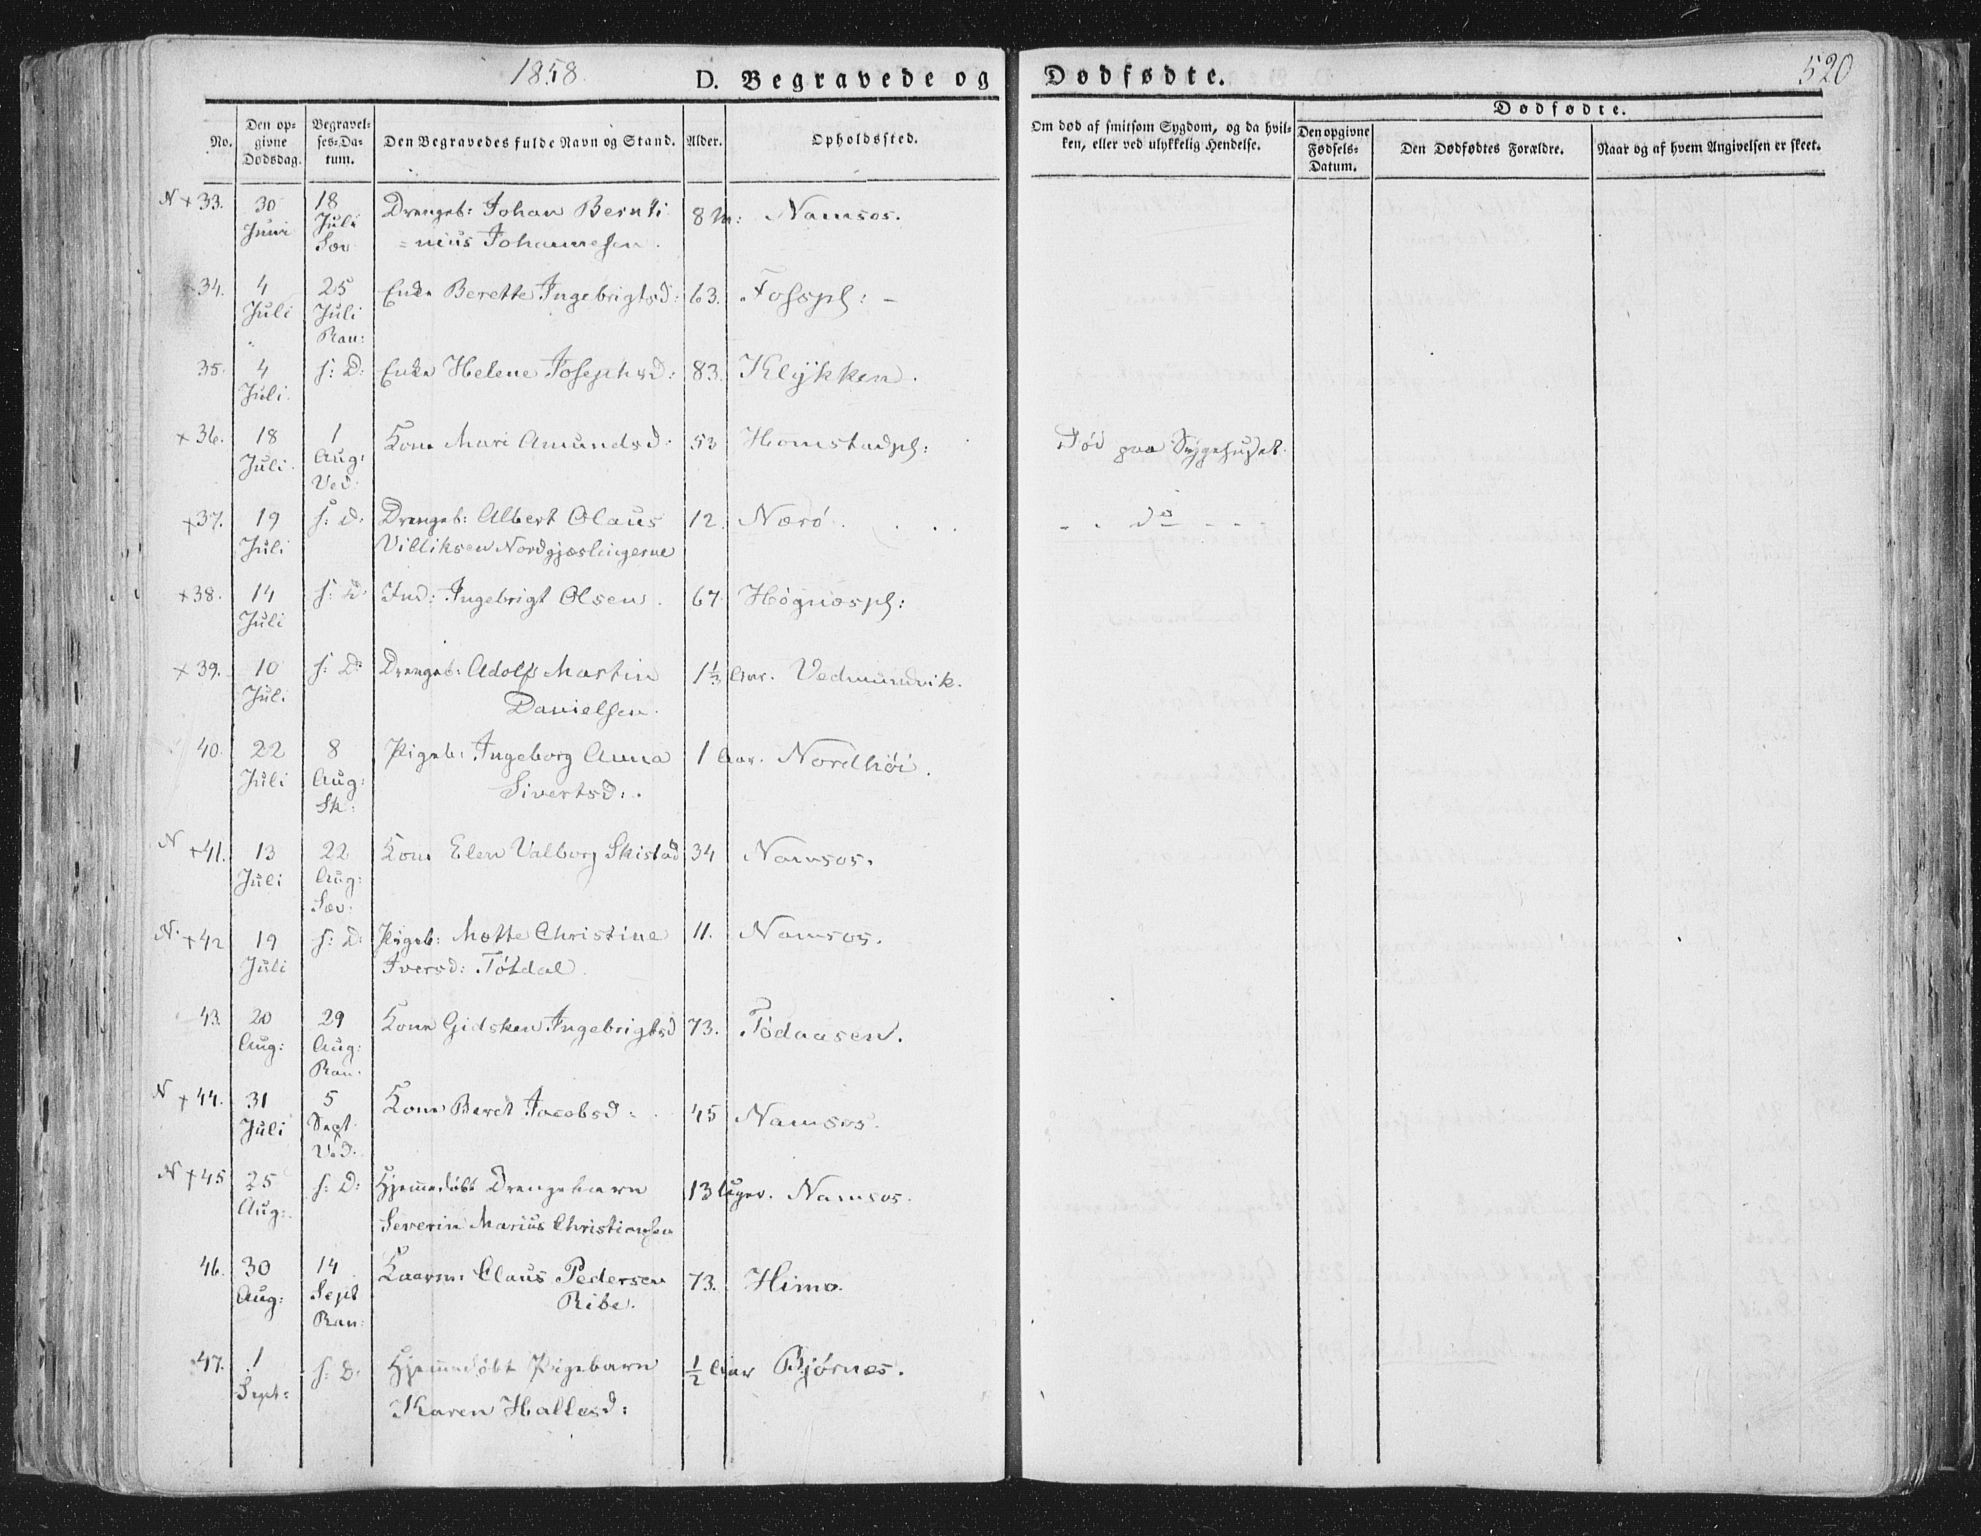 1858.
D. Begravede og
Dødfødte.
520
No.
Den op-
givne
Dødsdag.
Begravel-
ses-Da-
tum.
Den Begravedes fulde Navn og Stand.
Alder.
Opholdssted.
Om død af smitsom Sygdom, og da hvil-
ken, eller ved ulykkelig Hendelse.
Dødfødte.
Den opgivne
Fødsels-
Datum.
Den Dødfødtes Forældre.
Naar og af hvem Angivelsen er skeet.
N + 33. 30 18 Drengeb: Johan Bernti 8 M: Namsos.
Juni Juli = nius Johannesen.
Sæv
34. 4 25 Enke Berette Ingebrigtsd: 63. Fosspl: -
Juli Juli
Ran:
35. 4 s: D: Enke Helene Josephsd: 83. Klykken.
Juli.
+ 36. 18 1 Kone Mari Amundsd. 53 Homstadpl: Død paa Sygehuset.
Juli. Aug:
Ved:
+ 37. 19 s: d: Drengeb: Albert Olaus 12. Nærö . . . . - . do - - -
Juli Villiksen Nordgjæslingerne
+ 38. 14 s: D Ind: Ingebrigt Olsen. 67. Högnæspl:
Juli
+ 39. 10 s: D: Drengeb: Adolf Martin 1⅓ Aar. Vedmundvik.
Juli Danielsen.
40. 22 8 Pigeb: Ingeborg Anna 1 Aar. Nordhöi.
Juli Aug: Sivertsd:.
Sk:
N + 41. 13 22 Kone Elen Valborg Skistad 34 Namsos.
Juli Aug:
Sæv:
N. + 42 19 s: D: Pigeb: Mette Christine 11. Namsos.
Juli Iversd: Tötdal.
43. 20 29 Kone Gidsken Ingebrigtsd 73. Tödaasen.
Aug: Aug:
Ran:
N + 44. 31 5 Kone Beret Jacobsd: 45 Namsos.
Juli Sept.
Ved:
N + 45 25 s: D: Hjemmedöbt Drengebarn 13 Uger. Namsos.
Aug: Severin Marius Christiansen
46. 30 14 Claus Pedersen 73. Himo.
Aug: Sept Ribe.
Ran:
47. 1 s: D. Hjemmedöbt Pigebarn ½ Aar Björnes.
Sept: Karen Hallesd: